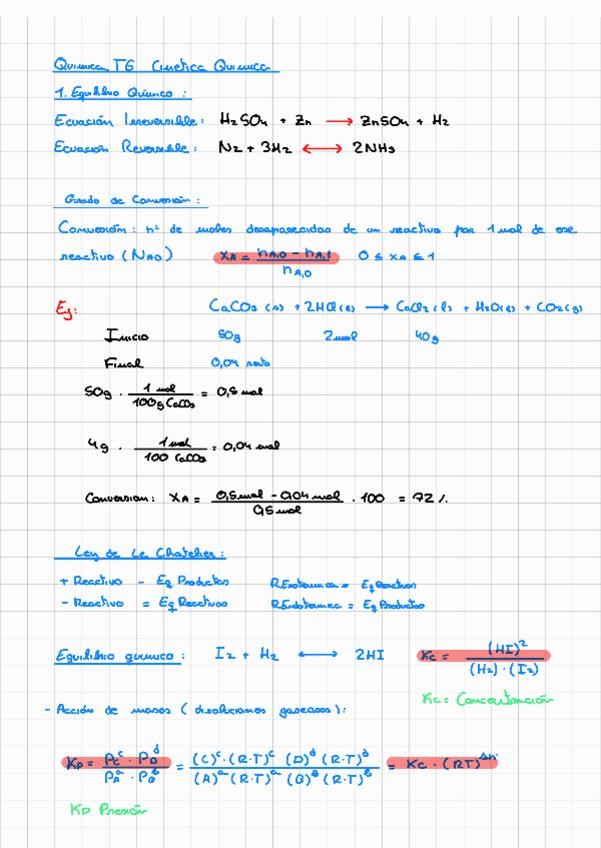 Quimica T6 Cinetica Quimica
1. Equilibrio Químico :
Ecuación Irreversible: H₂SO₄ + Zn → ZnSO₄ + H₂
Ecuacion Reversible: N₂ + 3H₂ ⟷ 2NH₃
Grado de Conversión :
Conversión : nº de moles desaparecidos de un reactivo por 1 mol de ese
reactivo (NA,0) XA = nA,0 - nA,1 / nA,0 0 ≤ xA ≤ 1
Ej: CaCO₃ (s) + 2HCl(l) → CaCl₂ (l) + H₂O(l) + CO₂(g)
Inicio 50g 2mol 40g
Final 0,04 resto
50g · 1 mol / 100g CaCO₃ = 0,5 mol
4g · 1 mol / 100 CaCO₃ = 0,04 mol
Conversion: XA = 0,5mol - 0,04mol / 0,5mol · 100 = 92 %
Ley de Le Chatelier :
+ Reactivo - Eq Productos RExotermica = Eq Reactivos
- Reactivo = Eq Reactivos REndotermica = Eq Productos
Equilibrio quimico : I₂ + H₂ ⟷ 2HI Kc = (HI)² / (H₂) · (I₂)
Kc = Concentración
- Acción de masas ( disoluciones gaseosas ) :
Kp = Pcᶜ · PDᵈ / PAᵃ · PBᵇ = (C)ᶜ · (R·T)ᶜ (D)ᵈ (R·T)ᵈ / (A)ᵃ (R·T)ᵃ (B)ᵇ (R·T)ᵇ = Kc · (RT)^Δn
Kp Presión